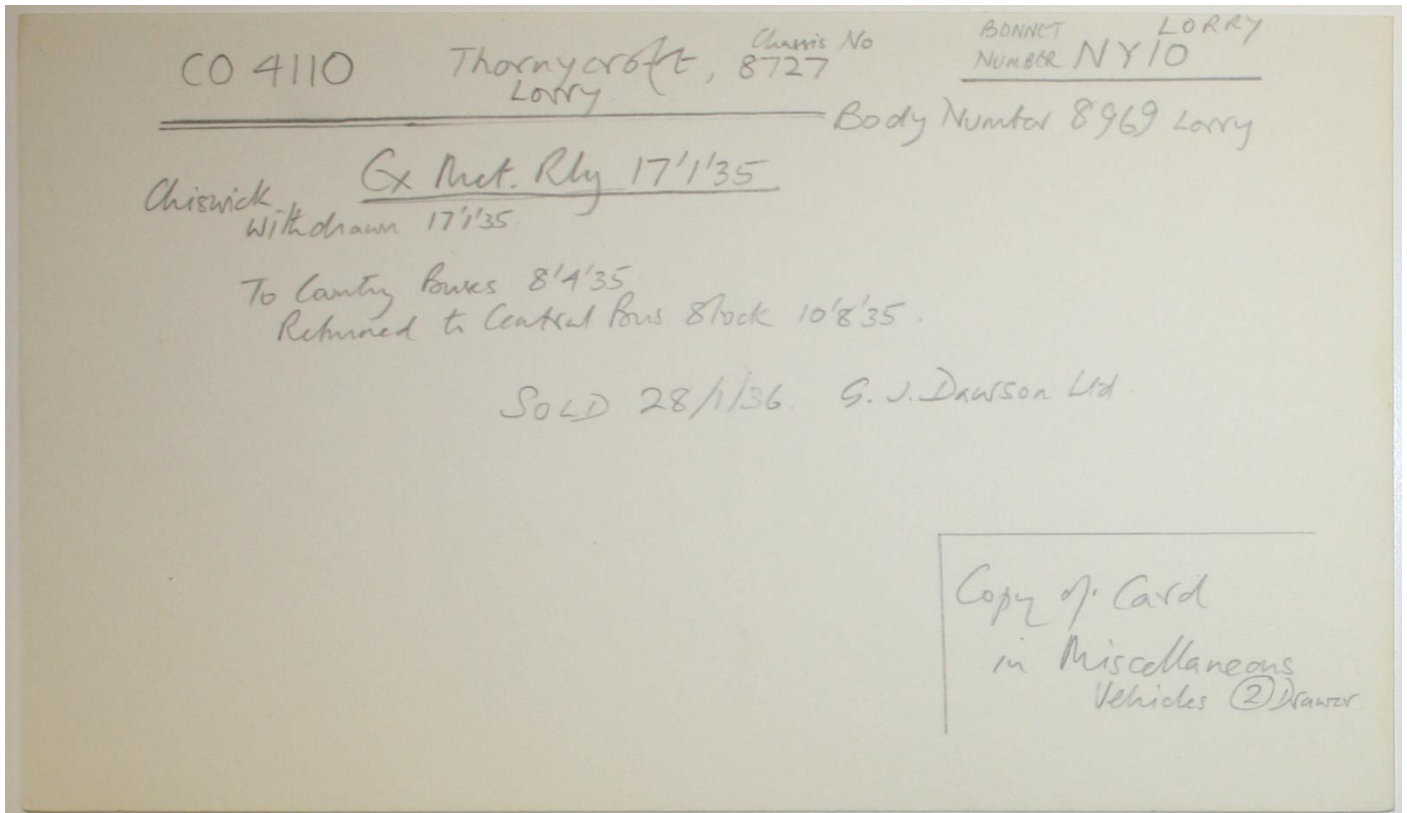 CO 4110 Thornycroft, Chassis No 8727 BONNET NUMBER NY10 LORRY
Lorry
Body Number 8969 Lorry
Ex Met. Rly 17'1'35
Chiswick
Withdrawn 17'1'35
To Country Buses 8'4'35
Returned to Central Bus Stock 10'8'35.
SOLD 28/1/36. G. J. Dawson Ltd.
Copy of Card
in Miscellaneous
Vehicles 2 Drawer